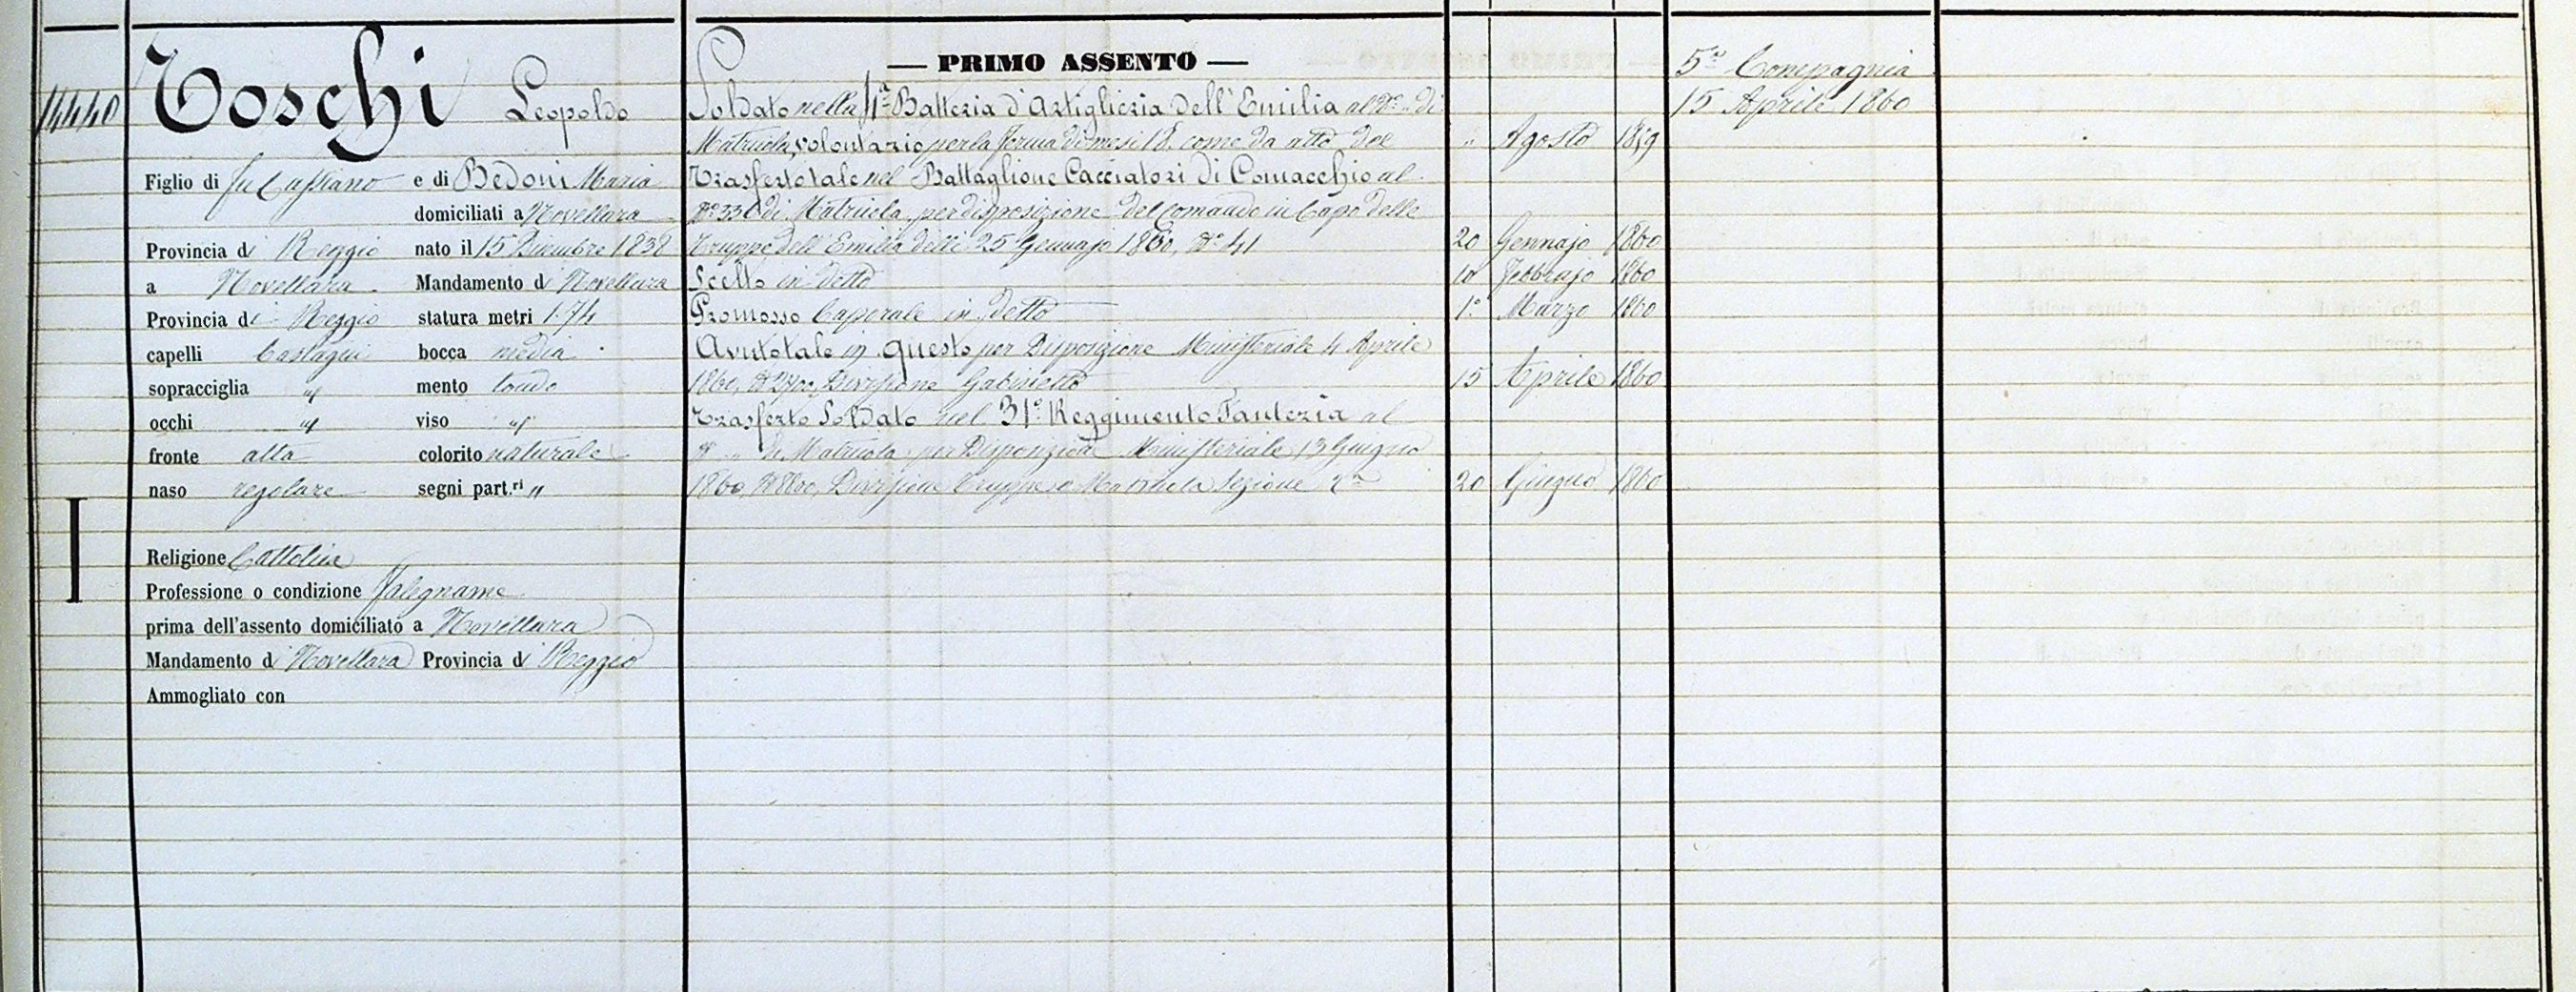 14440
Toschi Leopoldo
Figlio di fu Cassiano e di Bedoni Maria
domiciliati a Novellara
Provincia di Reggio nato il 15 Dicembre 1838
a Novellara Mandamento di Novellara
Provincia di Reggio statura metri 1.74
capelli Castagni bocca media
sopracciglia " mento tondo
occhi " viso "
fronte alta colorito naturale
naso regolare segni part.ri "
I
Religione Cattolica
Professione o condizione falegname
prima dell'assento domiciliato a Novellara
Mandamento di Novellara Provincia di Reggio
Ammogliato con
— PRIMO ASSENTO —
Soldato nella 1ª Batteria d'Artiglieria dell'Emilia al N° " di
Matricola, volontario per la ferma di mesi 18. come da atto del " Agosto 1859
Trasferto tale nel Battaglione Cacciatori di Comacchio al
N° 336 di Matricola per disposizione del Comando in Capo delle
Truppe dell'Emilia delli 25 Gennajo 1860, N° 41 20 Gennajo 1860
Scelto in detto 10 Febbrajo 1860
Promosso Caporale in detto 1° Marzo 1860
Avuto tale in questo per Disposizione Ministeriale 4 Aprile
1860, N° 2700, Divisione Gabinetto 15 Aprile 1860
Trasferto Soldato nel 31° Reggimento Fanteria al
N° " di Matricola per Disposizione Ministeriale 13 Giugno
1860, N° 8800, Divisione Truppe e Matricola Sezione 2ª 20 Giugno 1860
5ª Compagnia
15 Aprile 1860